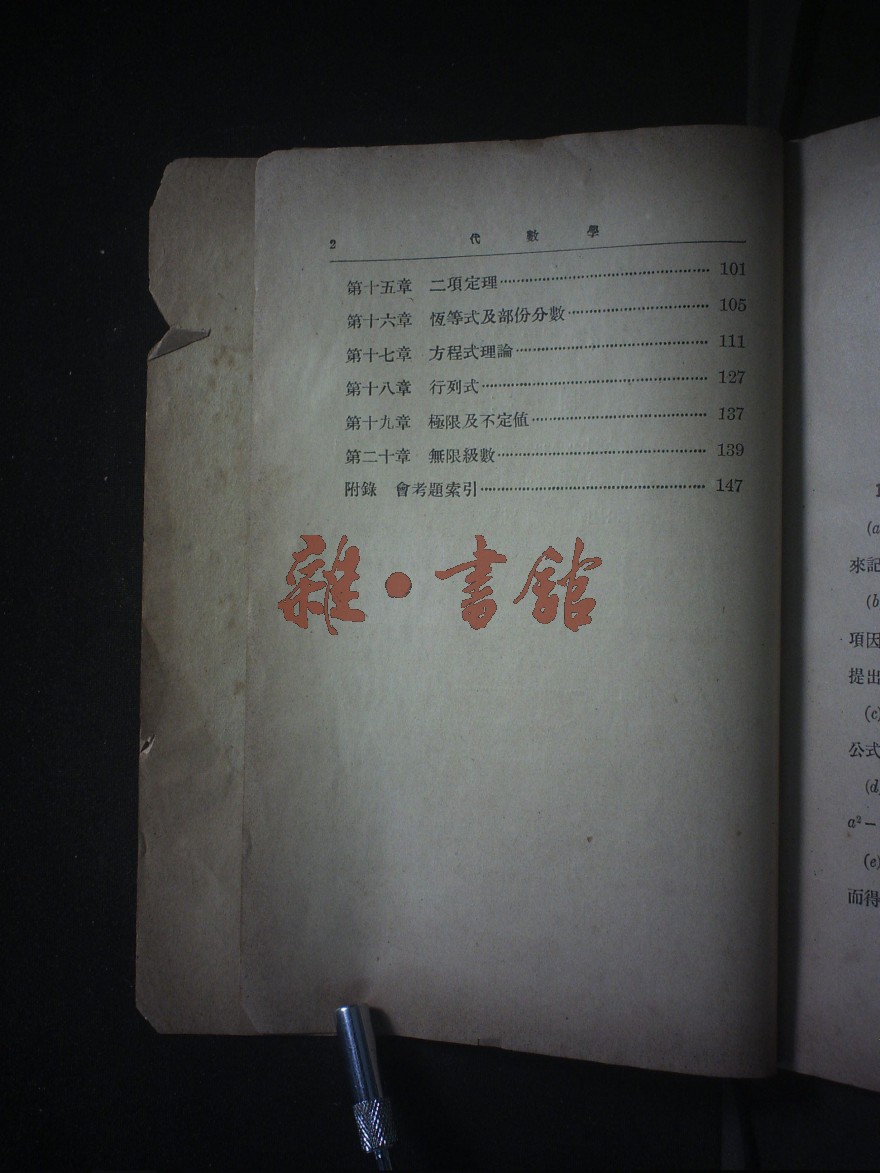 2 代數學
第十五章 二項定理 101
第十六章 恆等式及部份分數 105
第十七章 方程式理論 111
第十八章 行列式 127
第十九章 極限及不定值 137
第二十章 無限級數 139
附錄 會考題索引 147
雜・書館
1
(a
來記
(b
項因
提出
(c)
公式
(d
a²−
(e)
而得